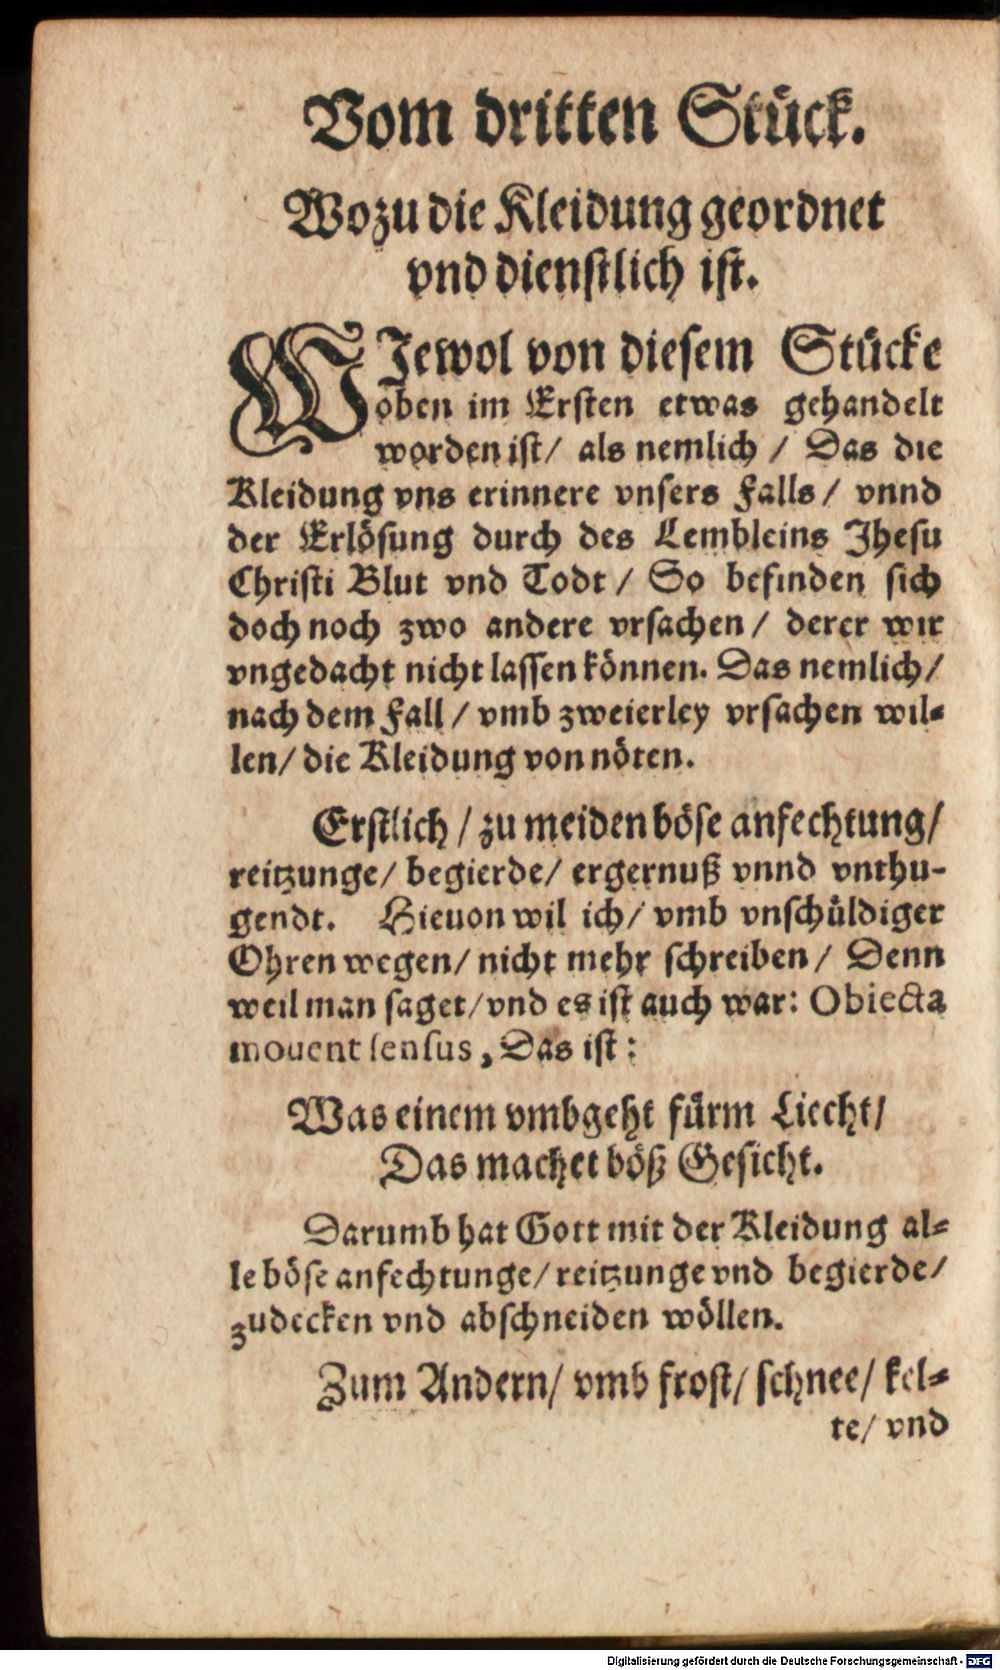 Vom dritten Stück.
Wozu die Kleidung geordnet
vnd dienstlich ist.
WJewol von diesem Stücke
oben im Ersten etwas gehandelt
worden ist/ als nemlich / Das die
Kleidung vns erinnere vnsers Falls/ vnnd
der Erlösung durch des Lembleins Jhesu
Christi Blut vnd Todt / So befinden sich
doch noch zwo andere vrsachen / derer wir
vngedacht nicht lassen können. Das nemlich/
nach dem Fall / vmb zweierley vrsachen wil-
len/ die Kleidung von nöten.
Erstlich / zu meiden böse anfechtung/
reitzunge/ begierde/ ergernuß vnnd vnthu-
gendt. Hieuon wil ich/ vmb vnschüldiger
Ohren wegen/ nicht mehr schreiben / Denn
weil man saget/ vnd es ist auch war: Obiecta
mouent sensus, Das ist:
Was einem vmbgeht fürm Liecht/
Das machet böß Gesicht.
Darumb hat Gott mit der Kleidung al-
le böse anfechtunge/ reitzunge vnd begierde/
zudecken vnd abschneiden wöllen.
Zum Andern/ vmb frost/ schnee/ kel-
te/ vnd
Digitalisierung gefördert durch die Deutsche Forschungsgemeinschaft - DFG